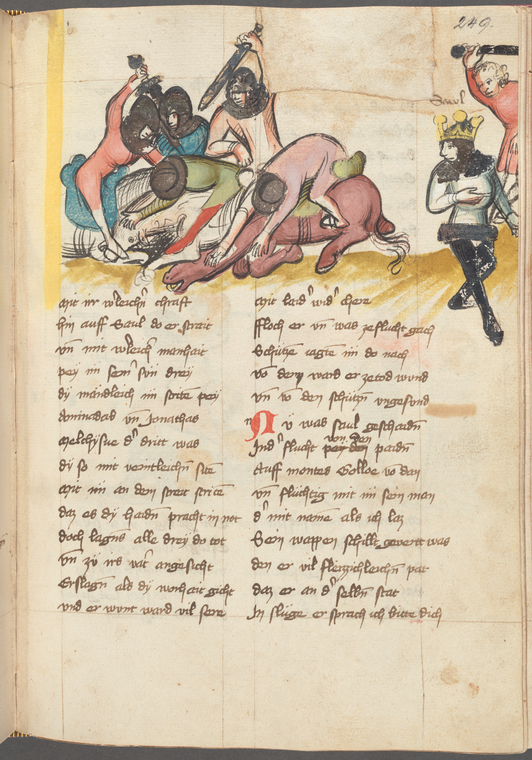 249.
Saul
mit ir werleichn chraft
hin auff Saul do er strait
vn mit werleich manhait
pey im sein sün drey
dy mandleich im strite pey
Aminadab vn Jonathas
Melchysue d' dritt was
dy so mit veintleichn site
mit im an dem streit strite
daz es dy haidn pracht in not
doch lagns alle drey do tot
vn zu irs vat' angesicht
Erslagn als dy worhait gicht
vnd er wunt ward vil sere
mit laid wid' chere
ffloch er vn was ze flucht gach
Schützn iagte im do nach
vo den ward er ze tod wund
vn vo den schützn vngesund
Nu was Saul geschaidn
In d' flucht von den haidn
Auff montes Gelboe vo dan
vn fluchtig mit im sein man
d' mit name als ich laz
Sein wappen schillt geverrt was
den er vil fleizzichleichn pat
daz er an d' selbn stat
In slüge er sprach ich bitte dich